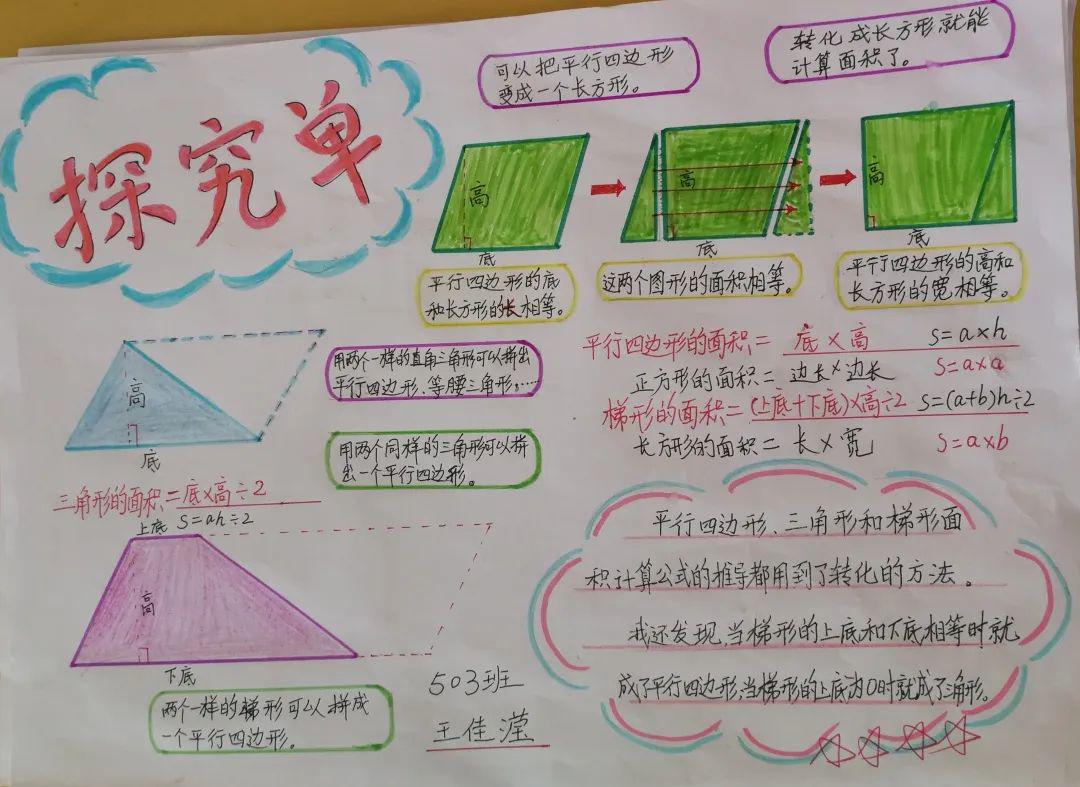 探究单
可以把平行四边形
变成一个长方形。
转化成长方形就能
计算面积了。
高
底
高
底
高
底
平行四边形的底
和长方形的长相等。
这两个图形的面积相等。
平行四边形的高和
长方形的宽相等。
高
底
用两个一样的直角三角形可以拼出
平行四边形、等腰三角形……
用两个同样的三角形可以拼
出一个平行四边形。
三角形的面积=底×高÷2
S=ah÷2
平行四边形的面积= 底×高 S=a×h
正方形的面积= 边长×边长 S=a×a
梯形的面积=(上底+下底)×高÷2 S=(a+b)h÷2
长方形的面积= 长×宽 S=a×b
上底
高
下底
两个一样的梯形可以拼成
一个平行四边形。
503班
王佳滢
平行四边形、三角形和梯形面
积计算公式的推导都用到了转化的方法。
我还发现,当梯形的上底和下底相等时就
成了平行四边形;当梯形的上底为0时就成了三角形。